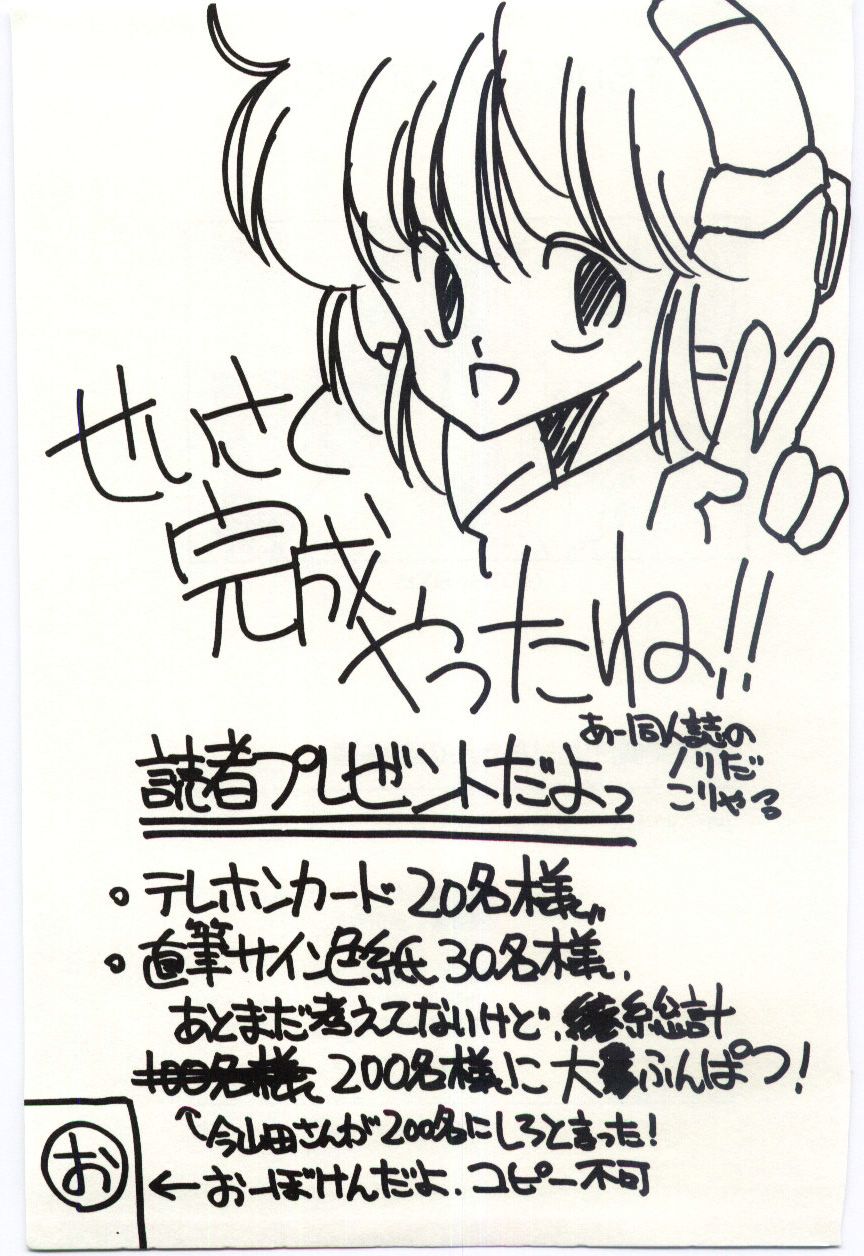 せいさく
完成
やったね!!
あー同人誌の
ノリだ
こりゃる
読者プレゼントだよっ
・テレホンカード 20名様に
・直筆サイン色紙 30名様に.
あとまだ考えてないけど、総計
100名様に 200名様に 大ふんぱつ!
↑今山田さんが200名にしろと言った!
お ←おーぼけんだよ. コピー不可